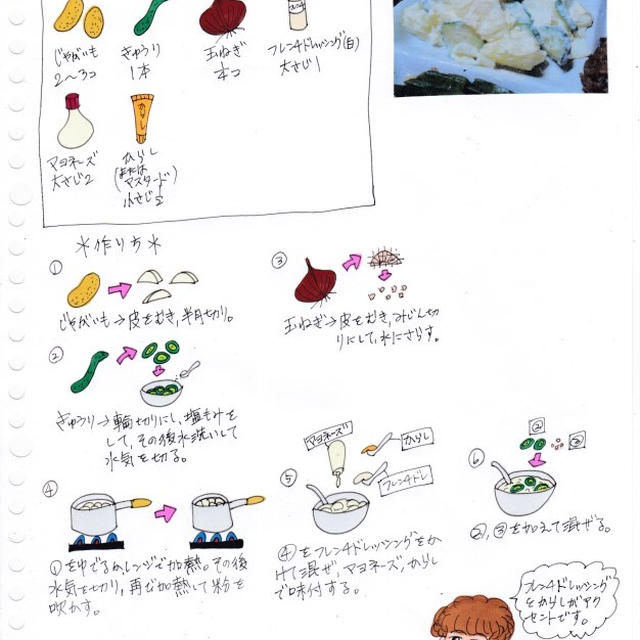 じゃがいも
2〜3コ
きゅうり
1本
玉ねぎ
フレンチドレッシング(白)
大さじ1
マヨネーズ
大さじ2
からし
からし
(または
マスタード)
小さじ2
*作り方*
①
じゃがいも→皮をむき,半月切り。
②
きゅうり→輪切りにし、塩もみを
して,その後水洗いして
水気を切る。
③
玉ねぎ→皮をむき,みじん切
りにして,水にさらす。
④
①をゆでるかレンジで加熱。その後
水気を切り,再び加熱して粉を
吹かす。
⑤
マヨネーズ
からし
フレンチドレ
④をフレンチドレッシングをか
けて混ぜ,マヨネーズ,からし
で味付する。
⑥
②
③
②,③を加えて混ぜる。
フレンチドレッシング
とからしがアク
セントです。